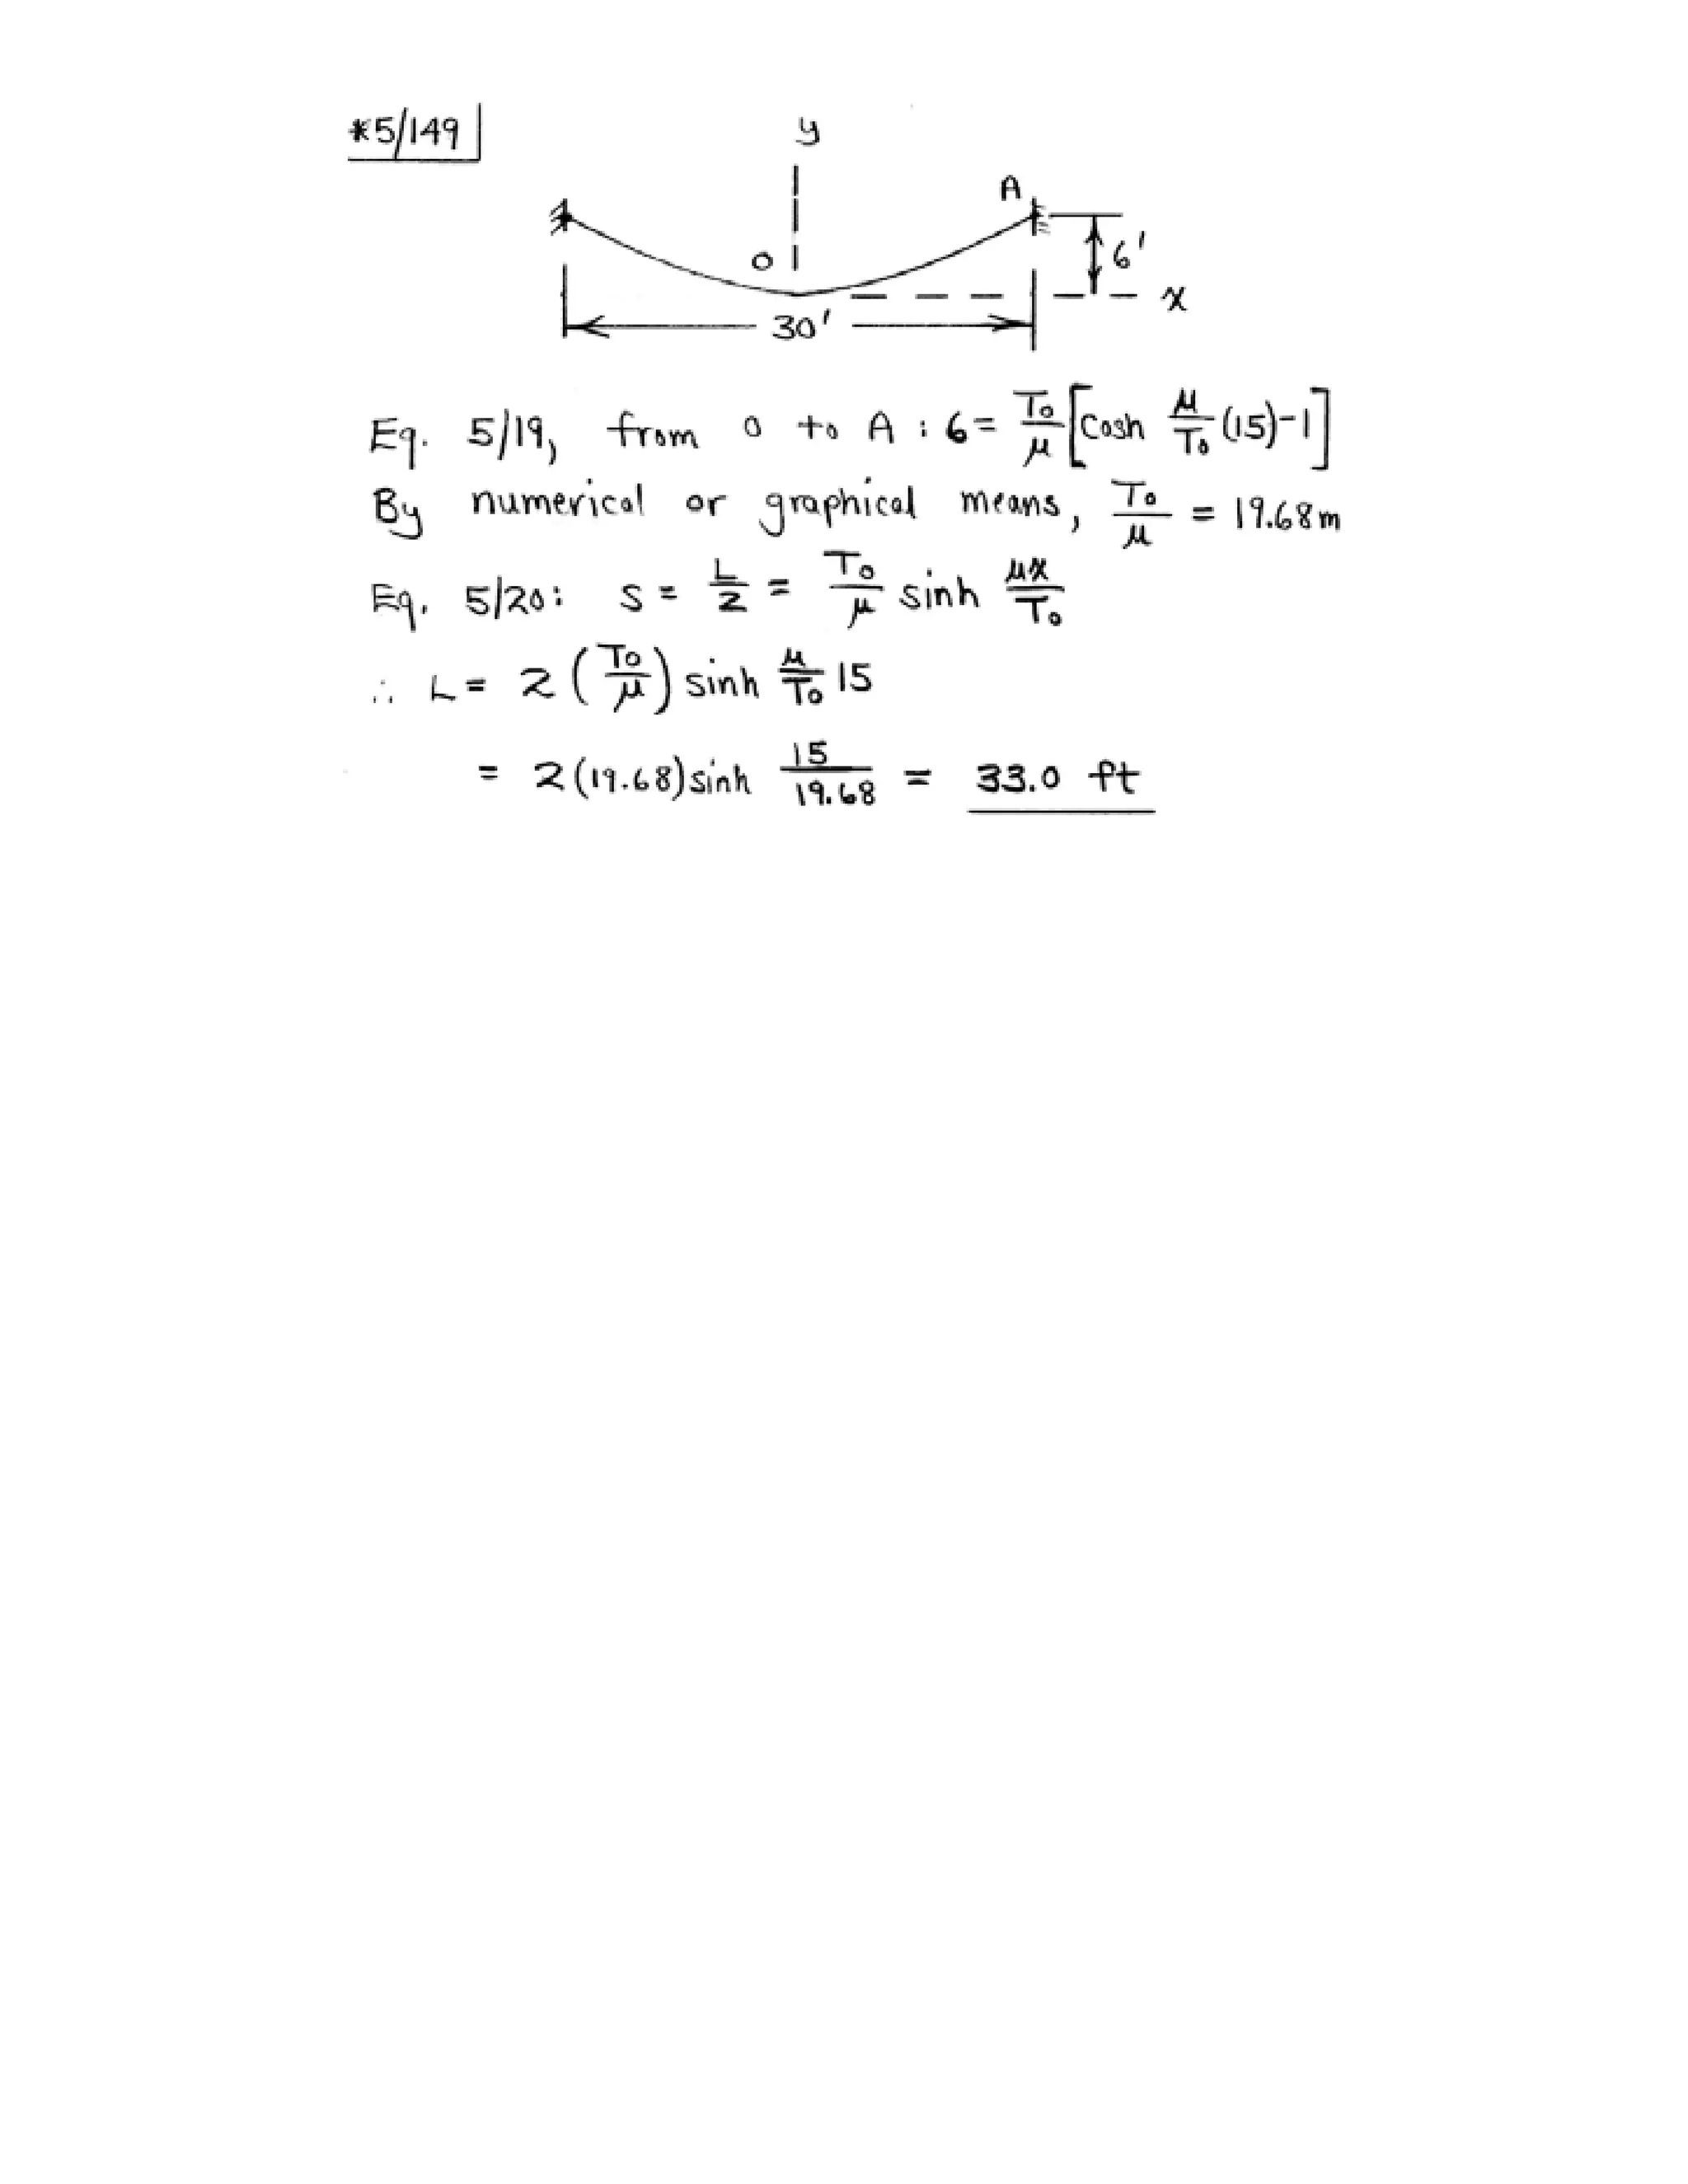 *5/149
y
A
6'
O
x
30'
Eq. 5/19, from O to A : 6 = To/μ [cosh μ/To (15)-1]
By numerical or graphical means, To/μ = 19.68m
Eq. 5/20: s = L/2 = To/μ sinh μx/To
∴ L = 2 (To/μ) sinh μ/To 15
= 2(19.68) sinh 15/19.68 = 33.0 ft